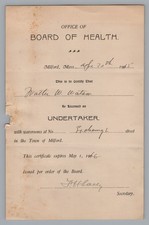 OFFICE OF
BOARD OF HEALTH.
Milford, Mass. Apr. 20th 1905
This is to Certify that
Walter W. Watson
Is licensed an
UNDERTAKER,
with warerooms at No. Exchange Street
in the Town of Milford.
This certificate expires May 1, 190
Issued for order of the Board.
Secretary.